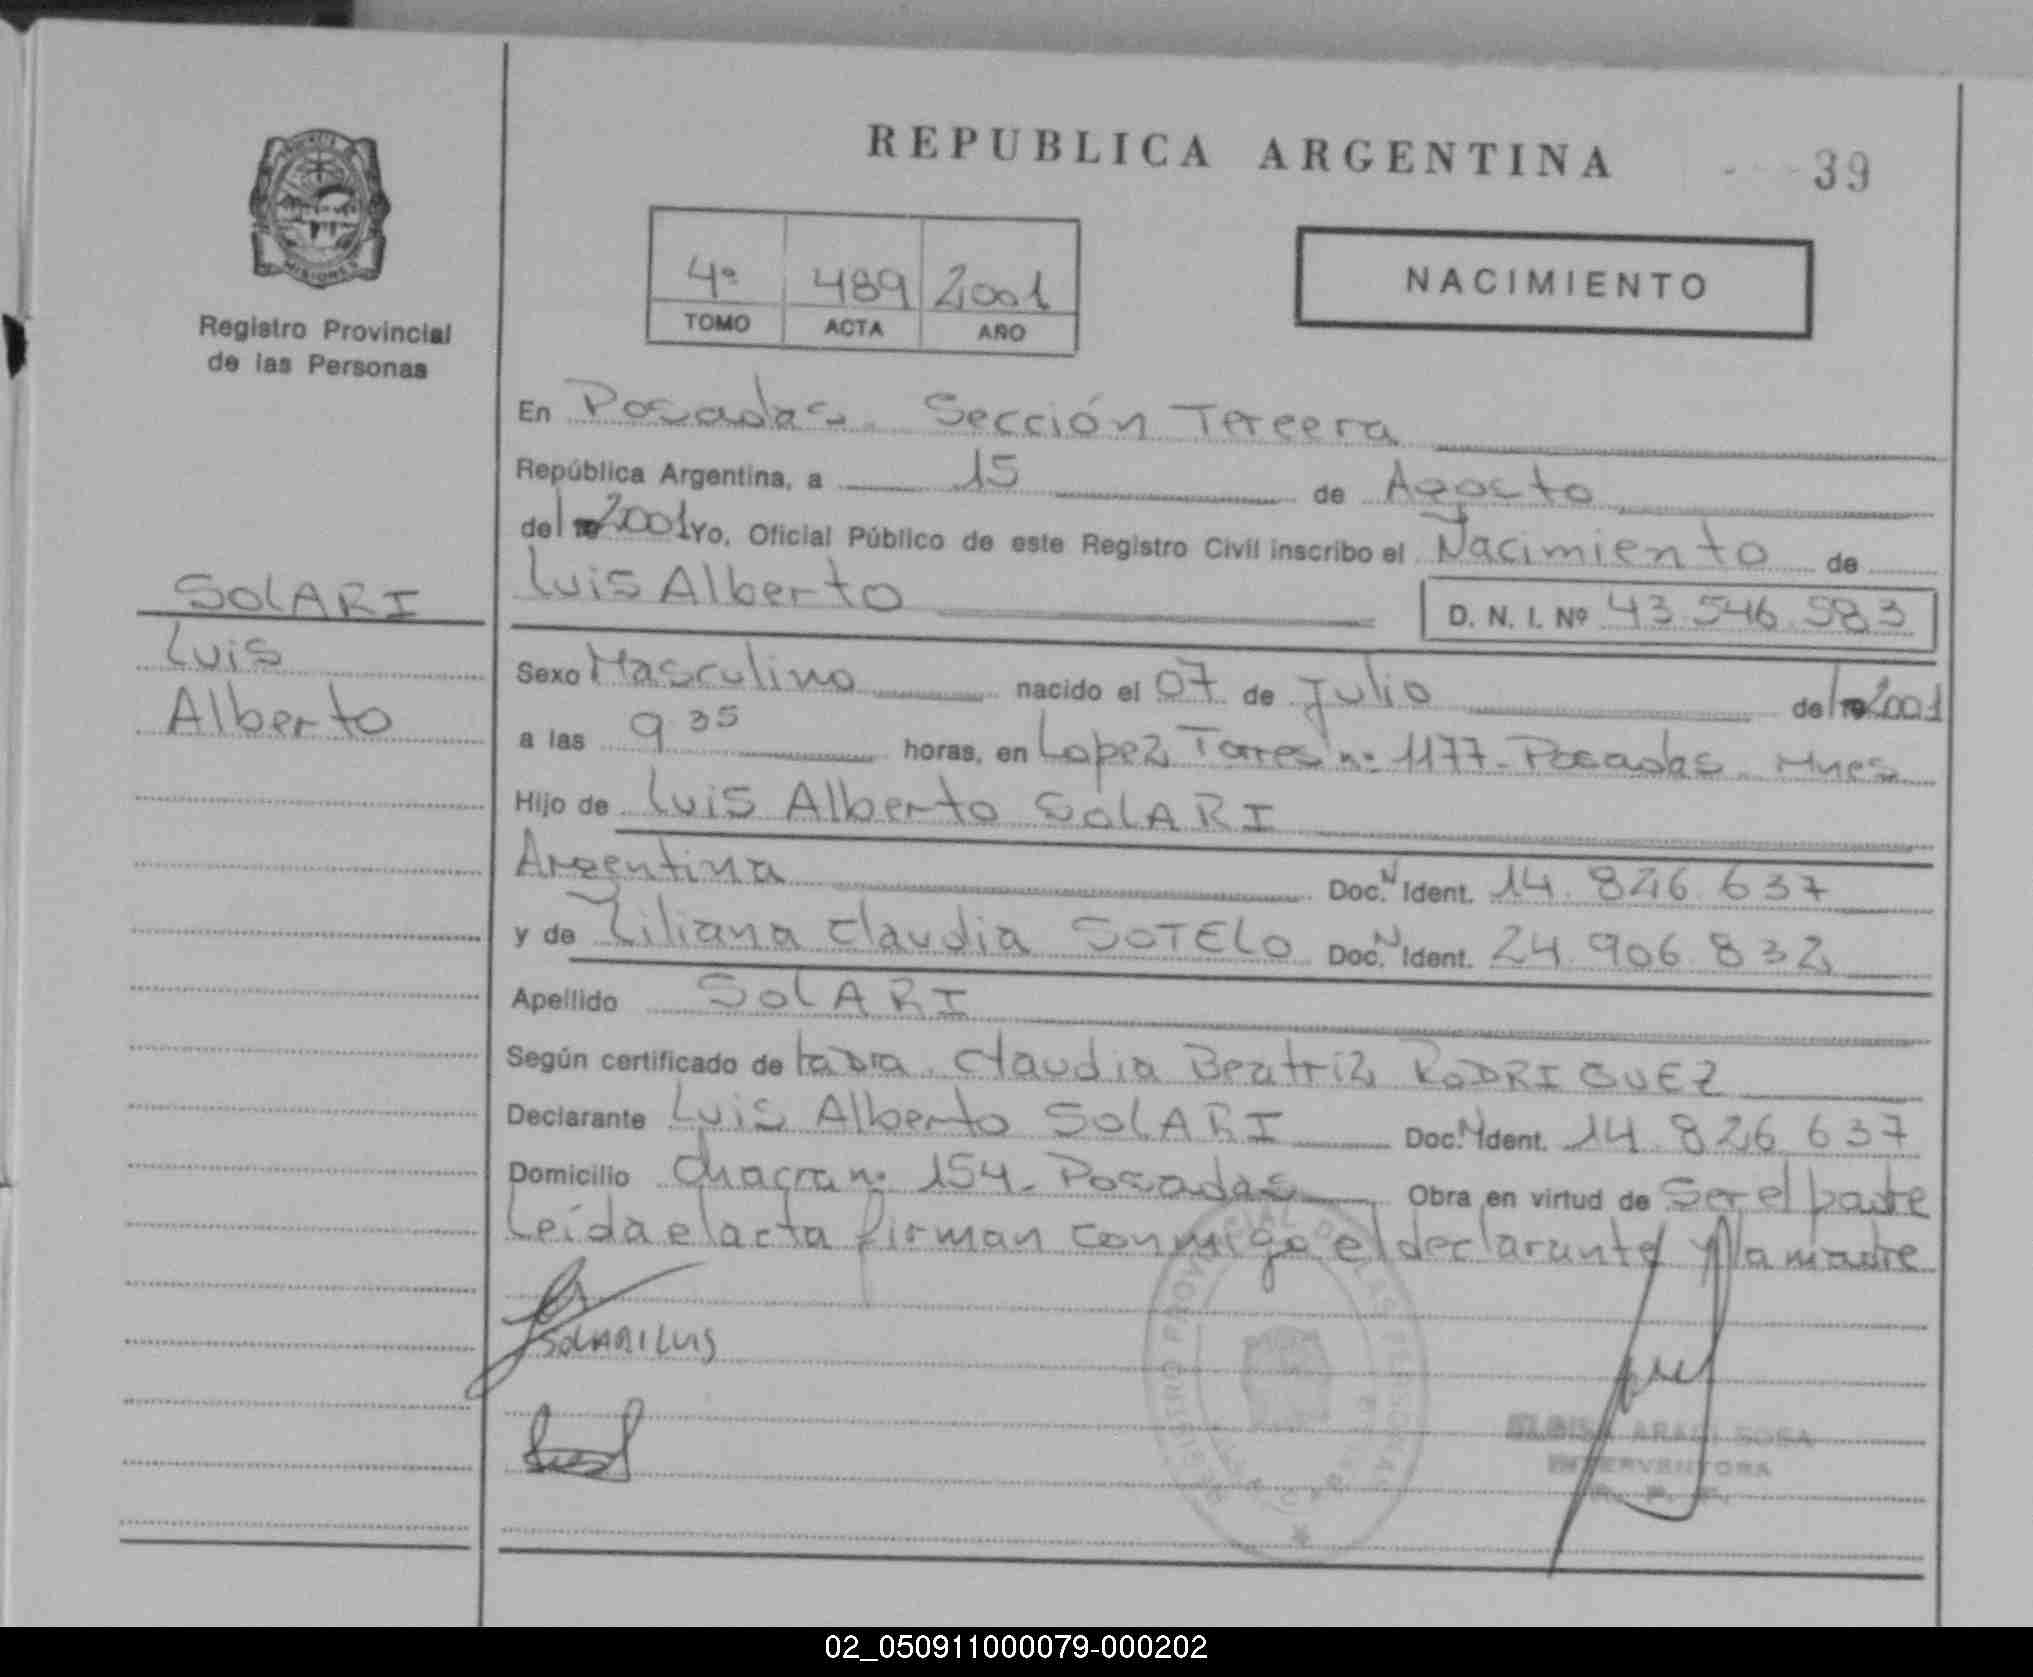 REPUBLICA ARGENTINA
39
MISIONES
Registro Provincial
de las Personas
4º 489 2001
TOMO ACTA AÑO
NACIMIENTO
SOLARI
Luis
Alberto
En Posadas. Sección Tercera
República Argentina, a 15 de Agosto
del 2001 Yo, Oficial Público de este Registro Civil inscribo el Nacimiento de
Luis Alberto D. N. I. Nº 43.546.583
Sexo Masculino nacido el 07 de Julio del 2001
a las 9 35 horas, en Lopez Torres nº 1177. Posadas. Mnes
Hijo de Luis Alberto SOLARI
Argentina Doc. N Ident. 14.826.637
y de Liliana Claudia SOTELO Doc. N Ident. 24.906.832
Apellido SOLARI
Según certificado de la Dra. Claudia Beatriz RODRIGUEZ
Declarante Luis Alberto SOLARI Doc. N Ident. 14.826.637
Domicilio Chacra nº 154. Posadas Obra en virtud de Ser el padre
Leída el acta firman conmigo el declarante y la madre
SOLARI LUIS
REGISTRO PROVINCIAL DE LAS PERSONAS
ARACI SOSA
INTERVENTORA
02_050911000079-000202